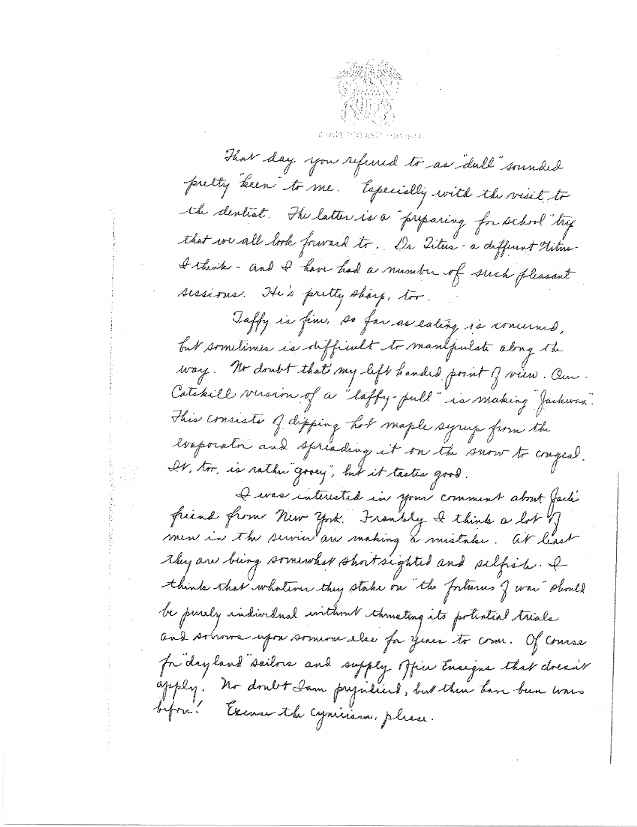 That day you referred to as "dull" sounded
pretty "keen" to me. Especially with the visit to
the dentist. The latter is a "preparing for school" trip
that we all look forward to. Dr. Titus - a different Titus
I think - and I have had a number of such pleasant
sessions. He's pretty sharp, too.
Taffy is fine, so far as eating is concerned,
but sometimes is difficult to manipulate along the
way. No doubt that's my left handed point of view. Our
Catskill version of a "taffy-pull" is making "Jackwax".
This consists of dipping hot maple syrup from the
evaporator and spreading it on the snow to congeal.
It, too, is rather "gooey", but it tastes good.
I was interested in your comment about Jack's
friend from New York. Frankly I think a lot of
men in the service are making a mistake. At least
they are being somewhat shortsighted and selfish. I
think that whatever they stake on "the fortunes of war" should
be purely individual without thrusting its potential trials
and sorrows upon someone else for years to come. Of course
for "dry land" sailors and supply office Ensigns that doesn't
apply. No doubt I am prejudiced, but there have been wars
before! Excuse the cynicism, please.